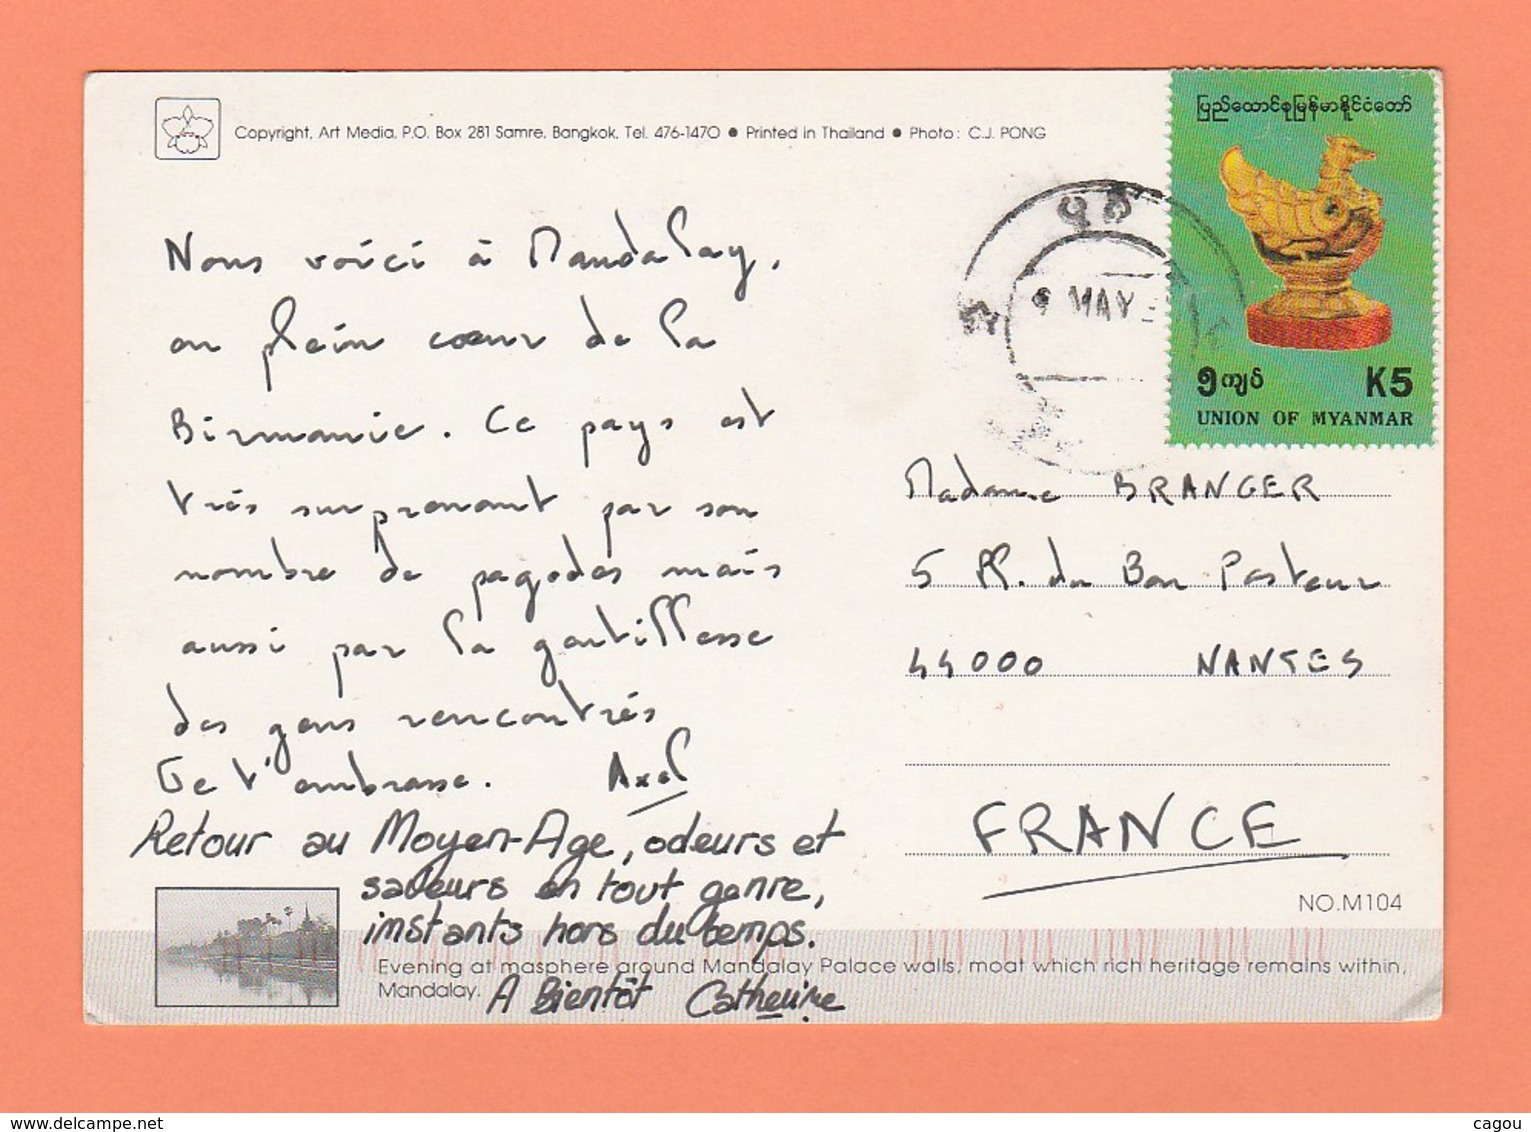 Copyright, Art Media, P.O. Box 281 Samre, Bangkok, Tel. 476-1470 ● Printed in Thailand ● Photo : C.J. PONG
ပြည်ထောင်စုမြန်မာနိုင်ငံတော်
၅ကျပ် K5
UNION OF MYANMAR
9 MAY
Nous voici à Mandalay,
en plein cœur de la
Birmanie. Ce pays est
très surprenant par son
nombre de pagodes mais
aussi par la gentillesse
des gens rencontrés
Je t'embrasse. Axel
Retour au Moyen-Age, odeurs et
saveurs en tout genre,
instants hors du temps.
A Bientôt Catherine
Madame BRANGER
5 Pl. du Bon Pasteur
44000 NANTES
FRANCE
NO.M104
Evening at masphere around Mandalay Palace walls, moat which rich heritage remains within,
Mandalay.
www.delcampe.net
cagou